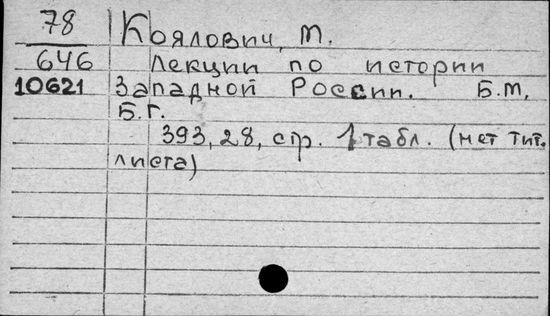 78 Коялович, М.
646 Лекции по истории
10621 Западной России. Б.М,
Б.г.
393, 28, стр. 1 табл. (нет тит.
листа)